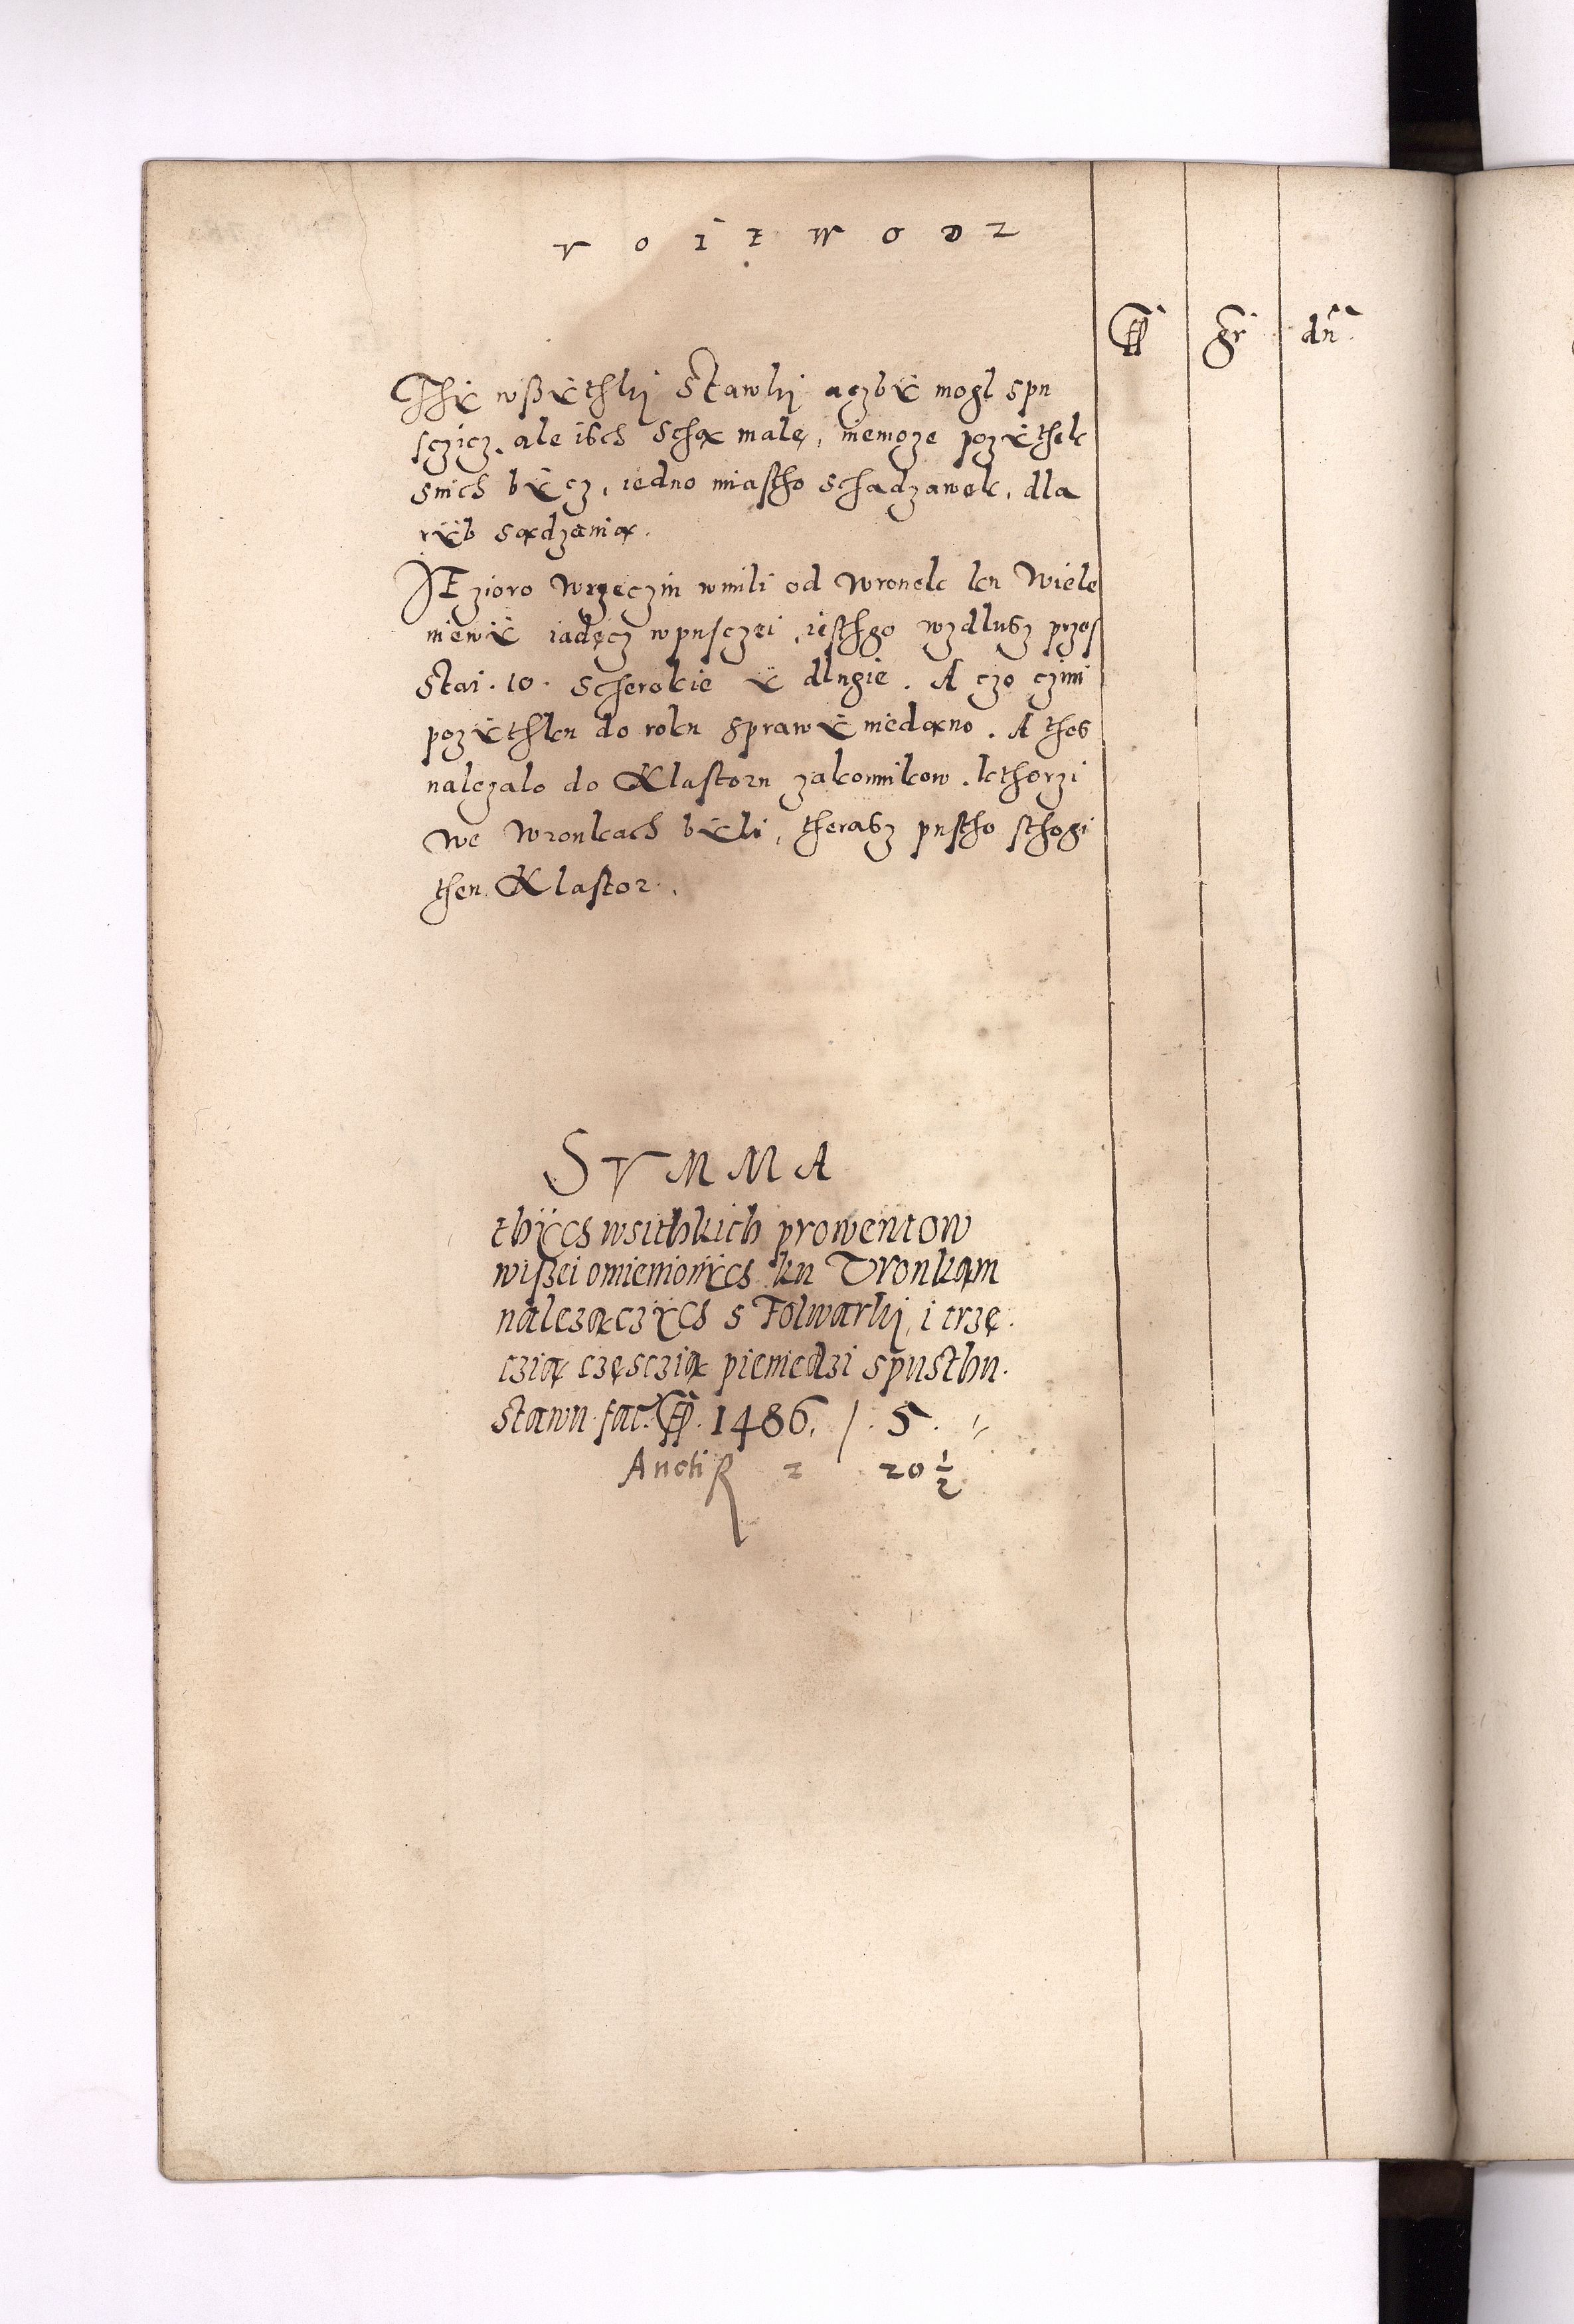 VOIEWODZ
fl gr dn
Thÿ wßÿthki Stawki aczbÿ mogl spu
sczicz. ale isch schą malę, niemoże pozÿthek
snich bÿcz, iedno miastho schadzawek, dla
rÿb sądzenią.
IEzioro wrzeczin wmili od Wronek ku Wiele
niewÿ iadęcz wpusczei, iesthgo wzdlusz przes
Stai. 10. scherokie ÿ dlugie. A czo czini
pozÿthku do roku sprawÿ niedano. A thes
nalezalo do Klastoru zakonnikow. kthorzi
we Wronkach bÿli, therasz pustho sthogi
then Klastor.
SVMMA
thÿch wsithkich prowentow
wißei omienionÿch ku Vronkam
nalezączÿch s Folwarki, i trzę
czią częsczią pieniedzi spusthu
stawu fac. fl. 1486. / 5.
R 2 20 1/2